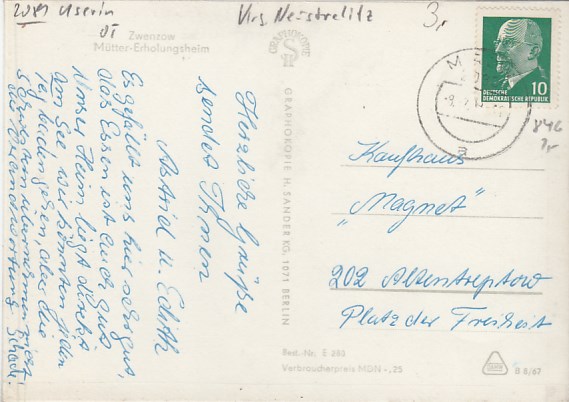 2081 Userin
OT
Krs Neustrelitz
3,-
Zwenzow
Mütter-Erholungsheim
GRAPHOKOPIE
10
DEUTSCHE
DEMOKRATISCHE REPUBLIK
846
1,-
Herzliche Grüße
sendet Ihnen
Astrid u. Edith
Es gefällt uns hier sehr gut,
das Essen ist auch gut
Unser Heim liegt direkt
am See, wir könnten jeden
Tag baden gehen, aber die
Schwestern übernehmen nicht
die Verantwortung. Schade.
GRAPHOKOPIE H. SANDER KG, 1071 BERLIN
Kaufhaus
„Magnet"
202 Altentreptow
Platz der Freiheit
Best.-Nr. E 283
Verbraucherpreis MDN -,25
B 8/67